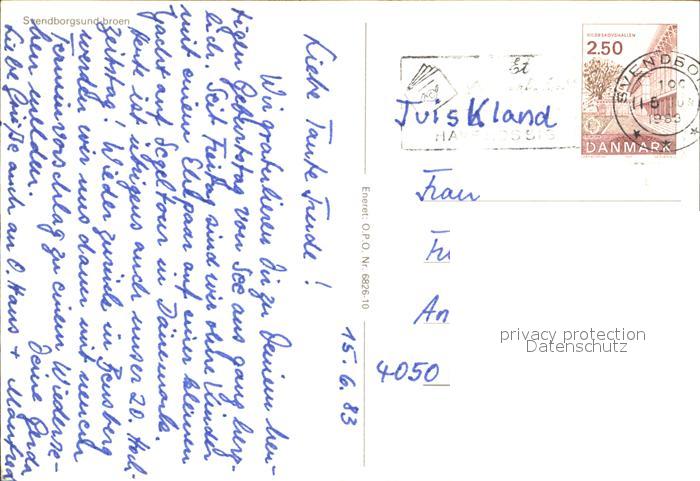 Svendborgsund-broen
Liebe Tante Trude!
Wir gratulieren Dir zu Deinem heu-
tigen Geburtstag von See aus ganz herz-
lich. Seit Freitag sind wir ohne Kinder
mit einem Ehepaar auf einer kleinen
Yacht auf Segeltour in Dänemark.
Heute ist übrigens auch unser 20. Hoch-
zeitstag! Wieder zurück in Bensberg
werden wir uns dann mit neuem
Terminvorschlag zu einem Wiederse-
hen melden. Deine Gerda
Liebe Grüße auch an O. Hans + Manfred
15.6.83
Eneret: O.P.O. Nr. 6826-10
HILDESKOVSHALLEN
2.50
DANMARK
SVENDBO
1983
Et
Tuiskland
Frau
Fu
An
4050
privacy protection
Datenschutz